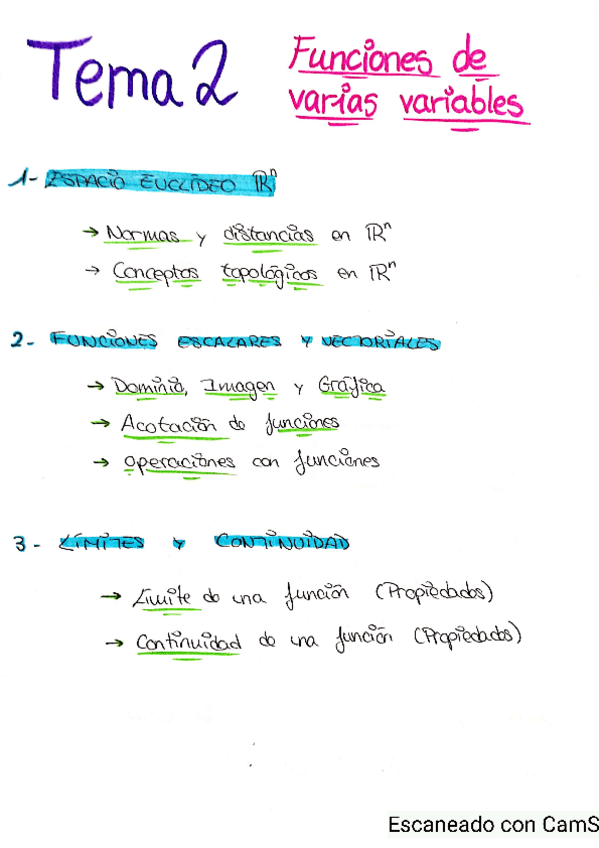 Tema 2
Funciones de
varias variables
1- ESPACIO EUCLÍDEO ℝⁿ
→ Normas y distancias en ℝⁿ
→ Conceptos topológicos en ℝⁿ
2- FUNCIONES ESCALARES Y VECTORIALES
→ Dominio, Imagen y Gráfica
→ Acotación de funciones
→ operaciones con funciones
3- LÍMITES Y CONTINUIDAD
→ Límite de una función (Propiedades)
→ Continuidad de una función (Propiedades)
Escaneado con CamS